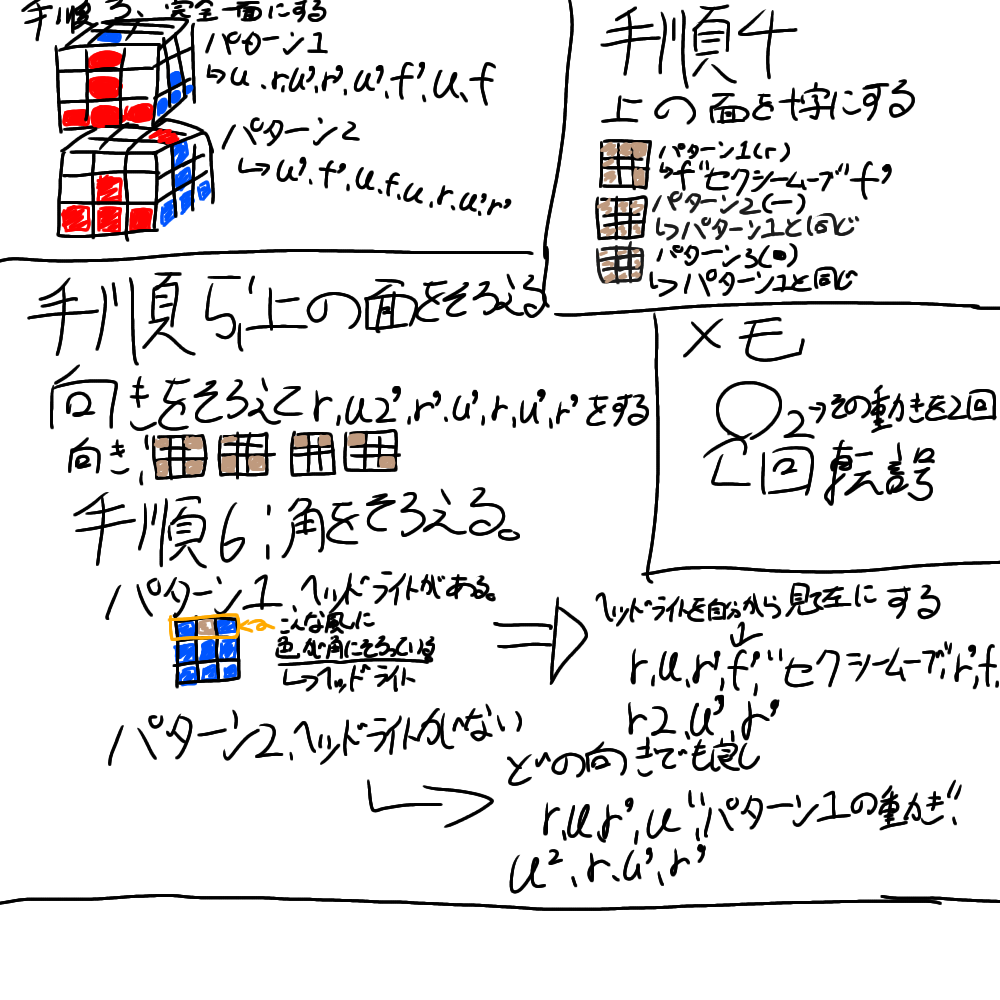 手順3、完全一面にする
パターン1
↳u.r.u'.r'.u'.f'.u.f
パターン2
↳u'.f'.u.f.u.r.u'.r'
手順4
上の面を十字にする
パターン1(r)
↳f"セクシームーブ"f'
パターン2(ー)
↳パターン1と同じ
パターン3(■)
↳パターン1と同じ
手順5;上の面をそろえる
向きをそろえてr,u2',r'.u',r,u',r'をする
向き;
メモ
◯2→その動きを2回
し回転記号
手順6;角をそろえる。
パターン1、ヘッドライトがある。
←こんな風に
色が角にそろっている
↳ヘッドライト
⇒ヘッドライトを自分から見て左にする
r,u,r',f',"セクシームーブ",r',f,
r2,u',r'
パターン2、ヘッドライトがない
どの向きでも良し
r,u,r',u',"パターン1の動き",
u2、r、u'、r'